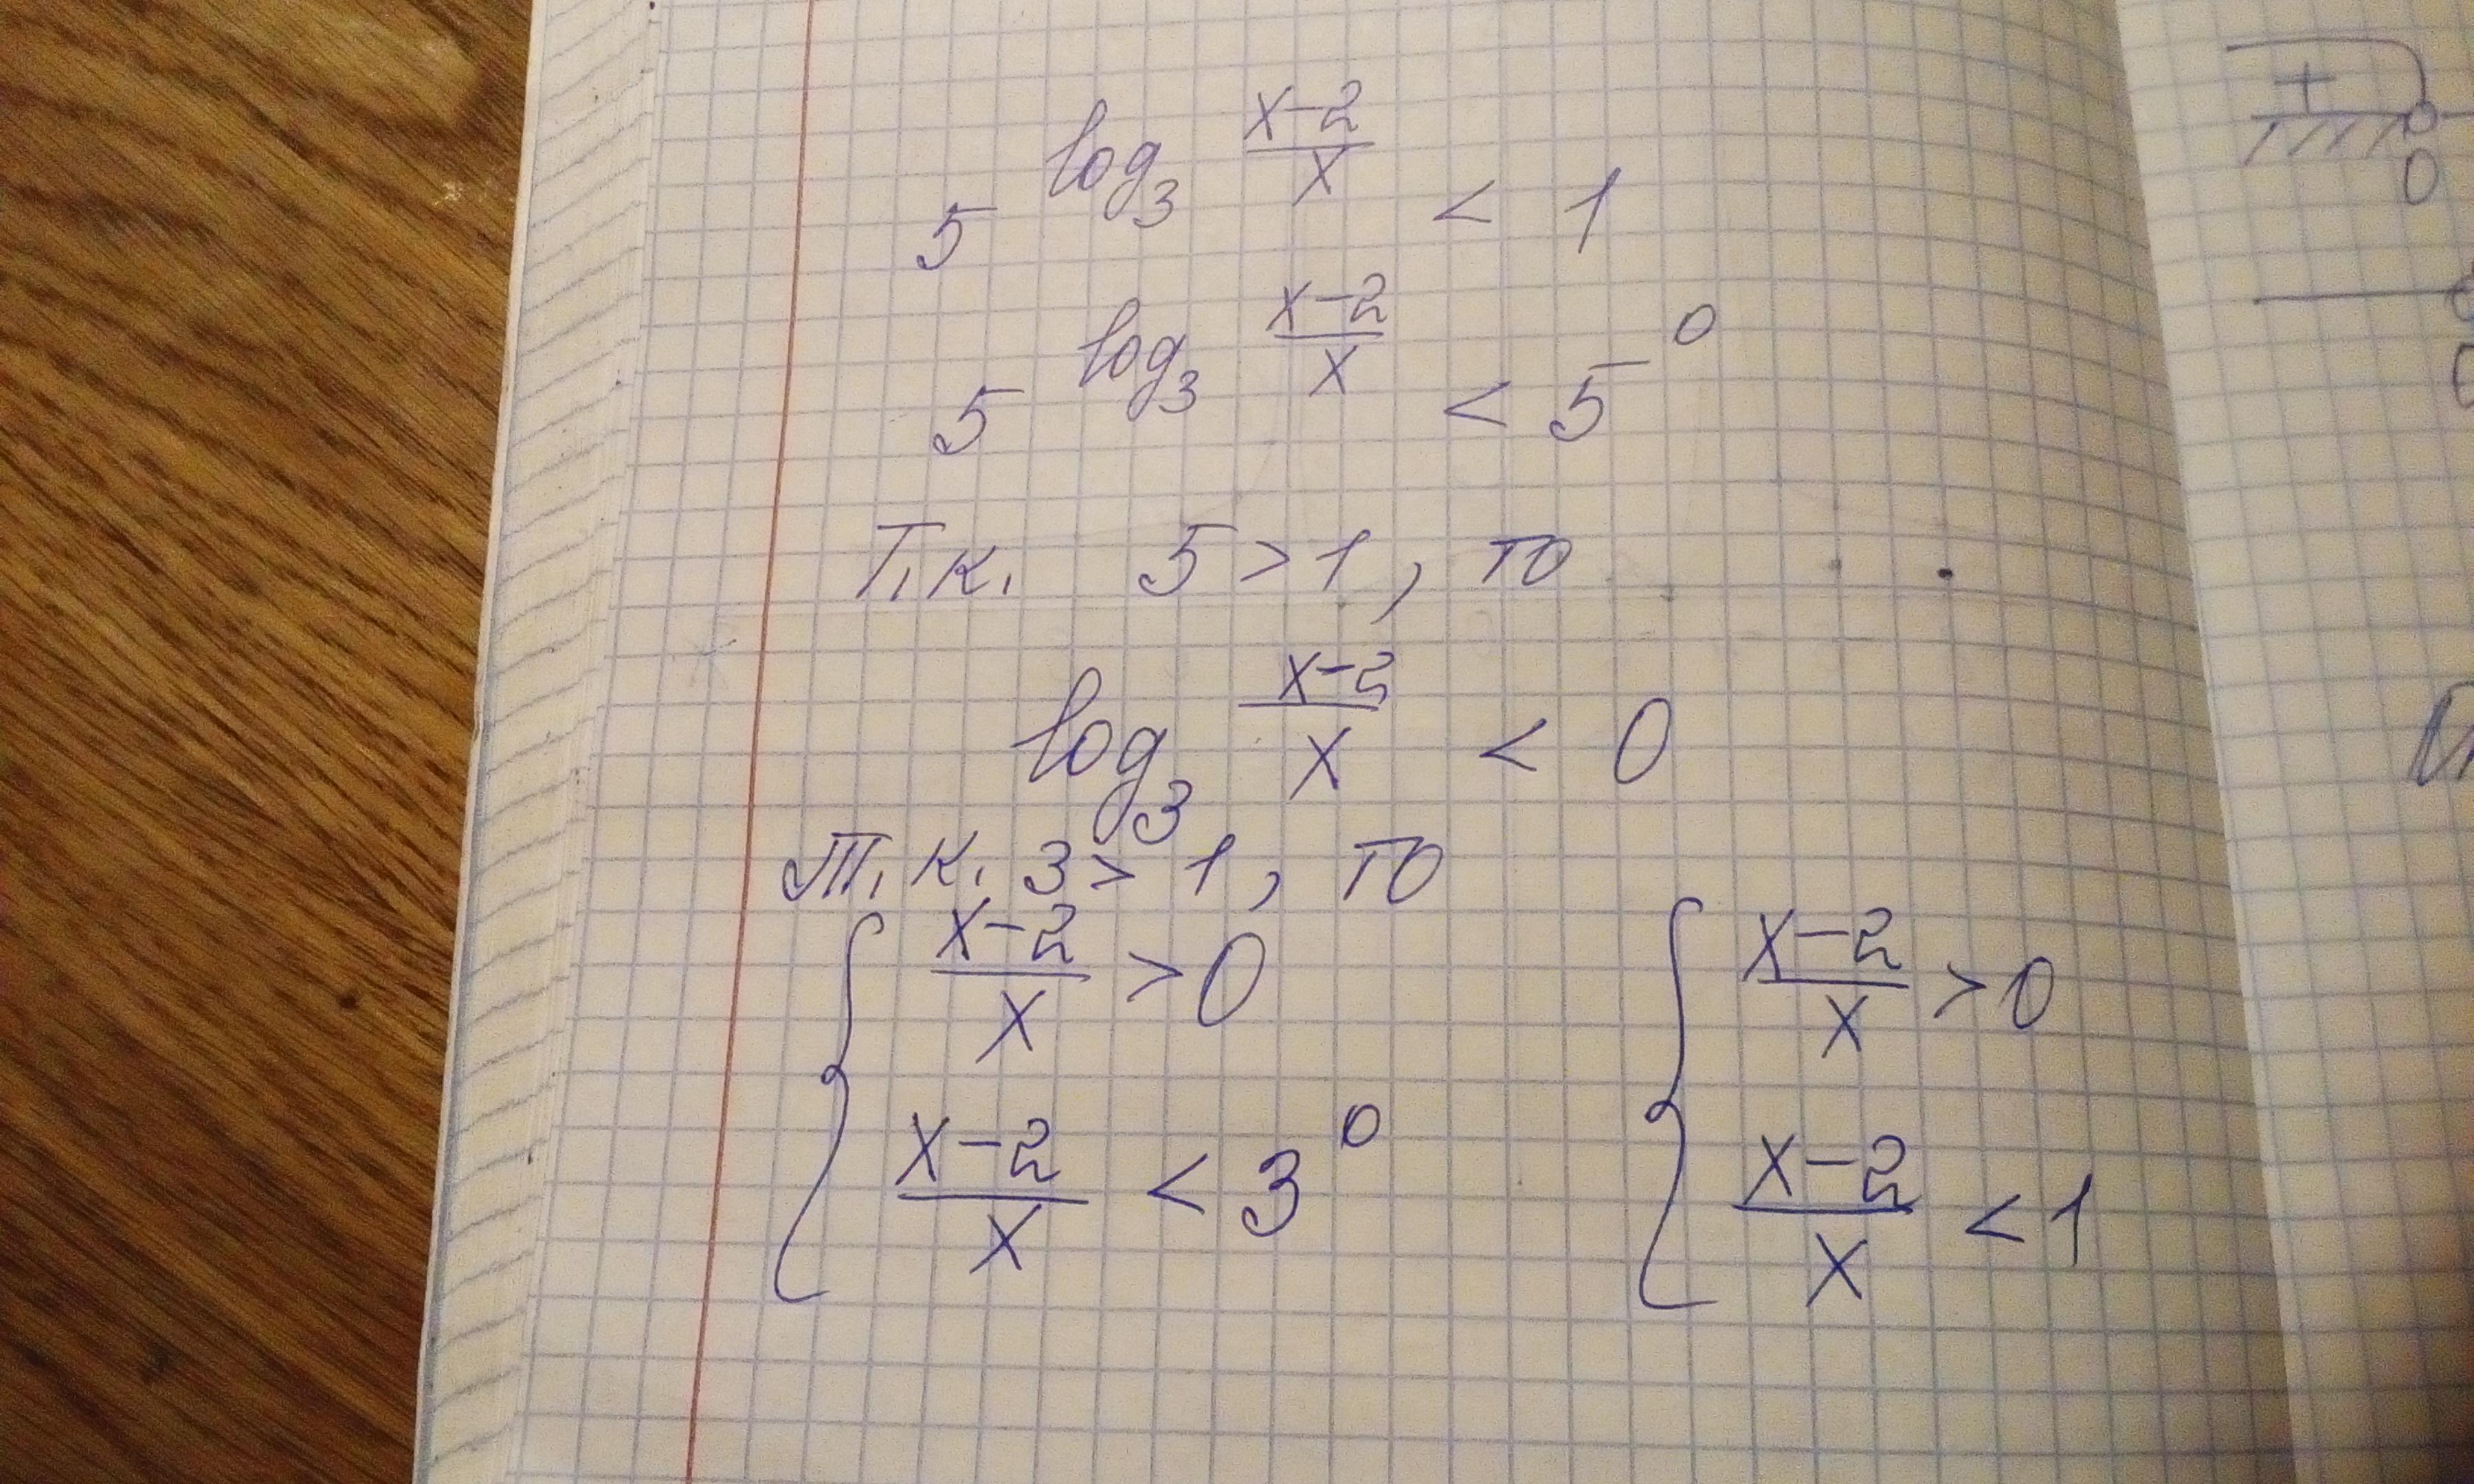 5^{log_3 \frac{x-2}{x}} < 1
5^{log_3 \frac{x-2}{x}} < 5^0
Т.к. 5 > 1, то
log_3 \frac{x-2}{x} < 0
Т.к. 3 > 1, то
{ \frac{x-2}{x} > 0 { \frac{x-2}{x} > 0
\frac{x-2}{x} < 3^0 \frac{x-2}{x} < 1
+
0